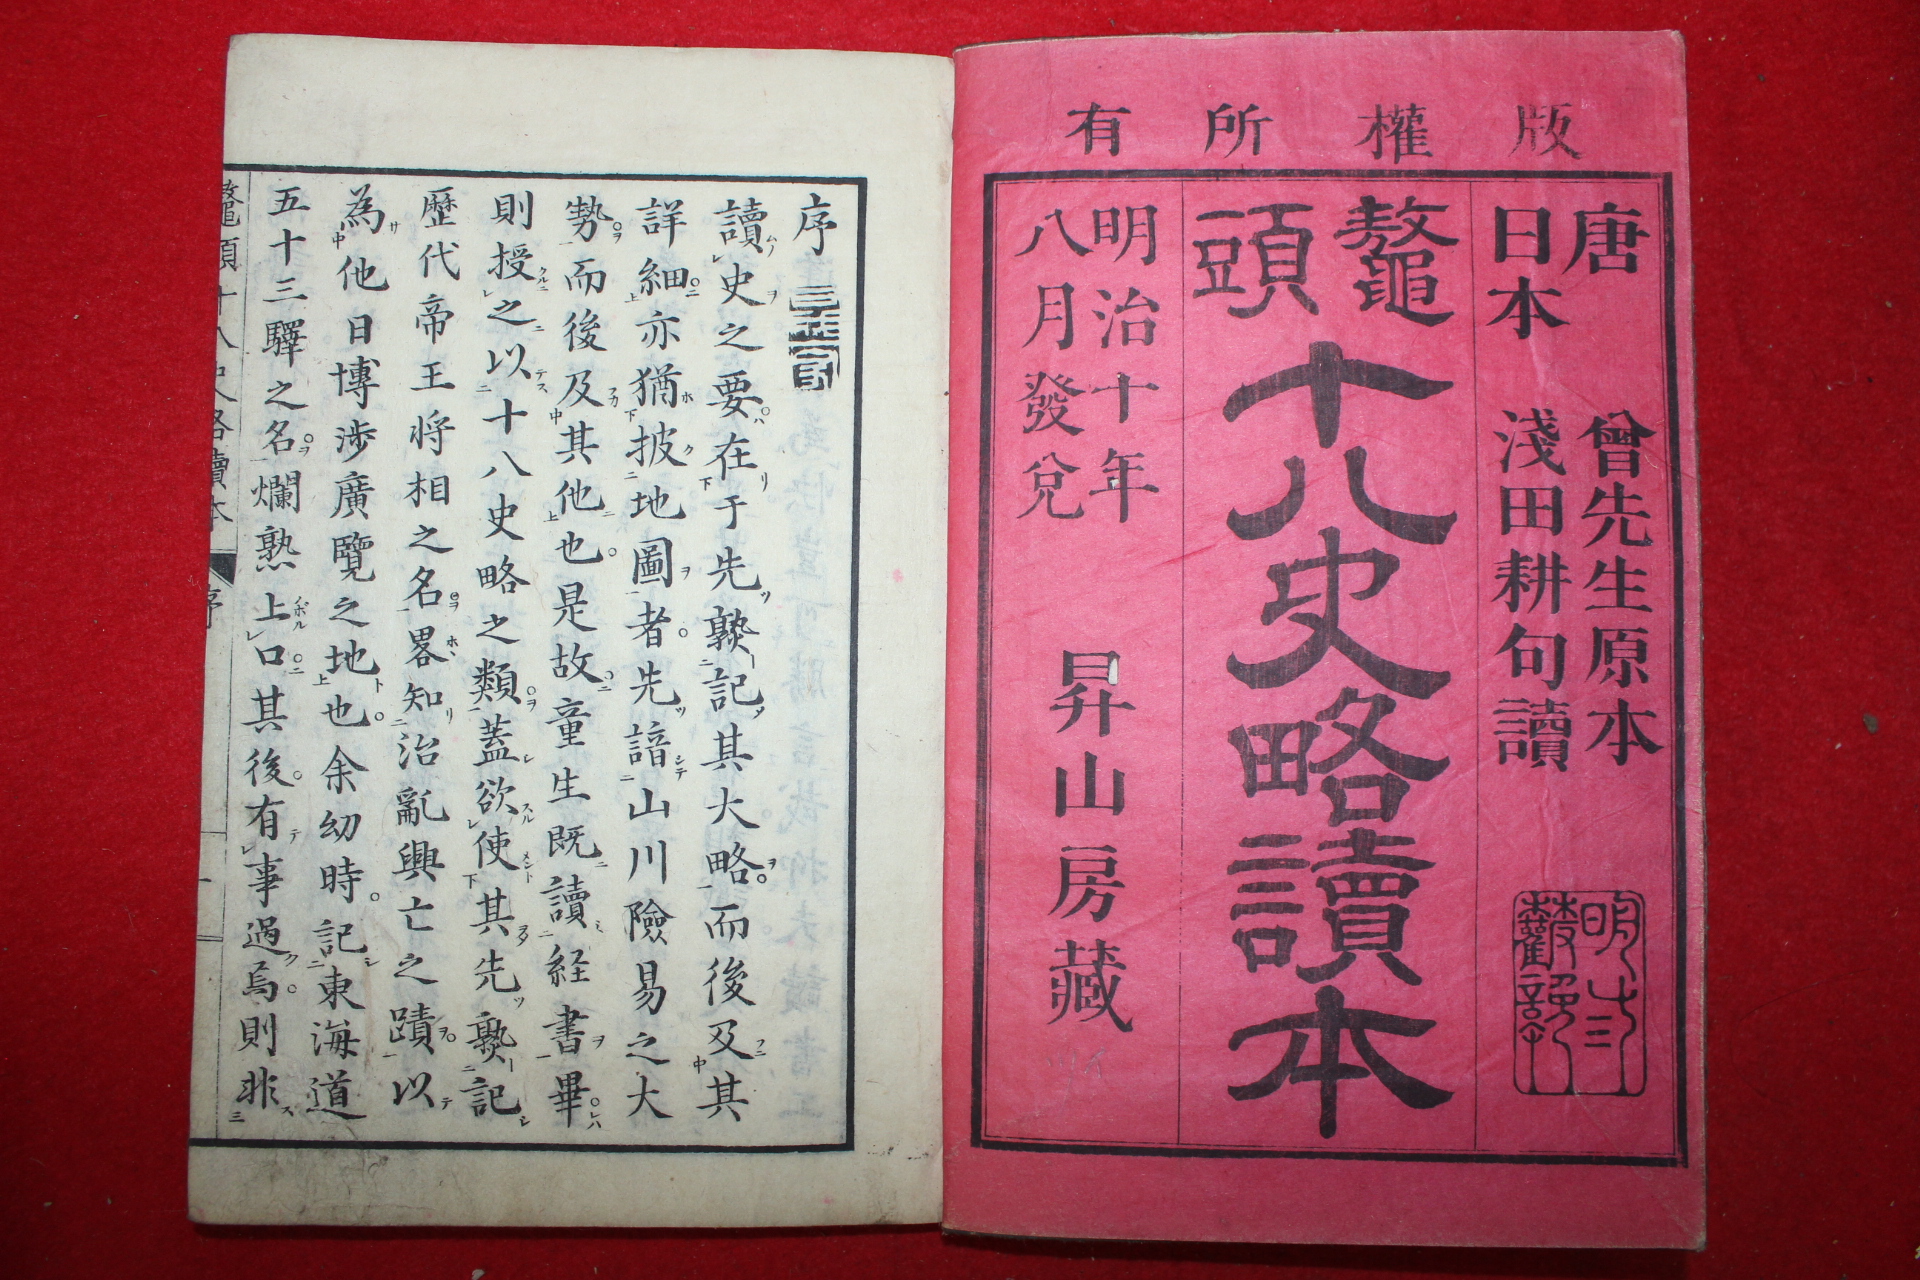 版權所有
唐 曾先生原本
日本 淺田耕句讀
鼇頭
十八史略讀本
明治十年
八月發兌
昇山房藏
序
讀史之要在于先熟記其大略而後及其
詳細亦猶披地圖者先諳山川險易之大
勢而後及其他也是故童生既讀経書畢
則授之以十八史略之類蓋欲使其先熟記
歷代帝王将相之名畧知治亂興亡之蹟以
為他日博渉廣覽之地也余幼時記東海道
五十三驛之名爛熟上口其後有事過焉則非
鼇頭十八史略讀本 序 一